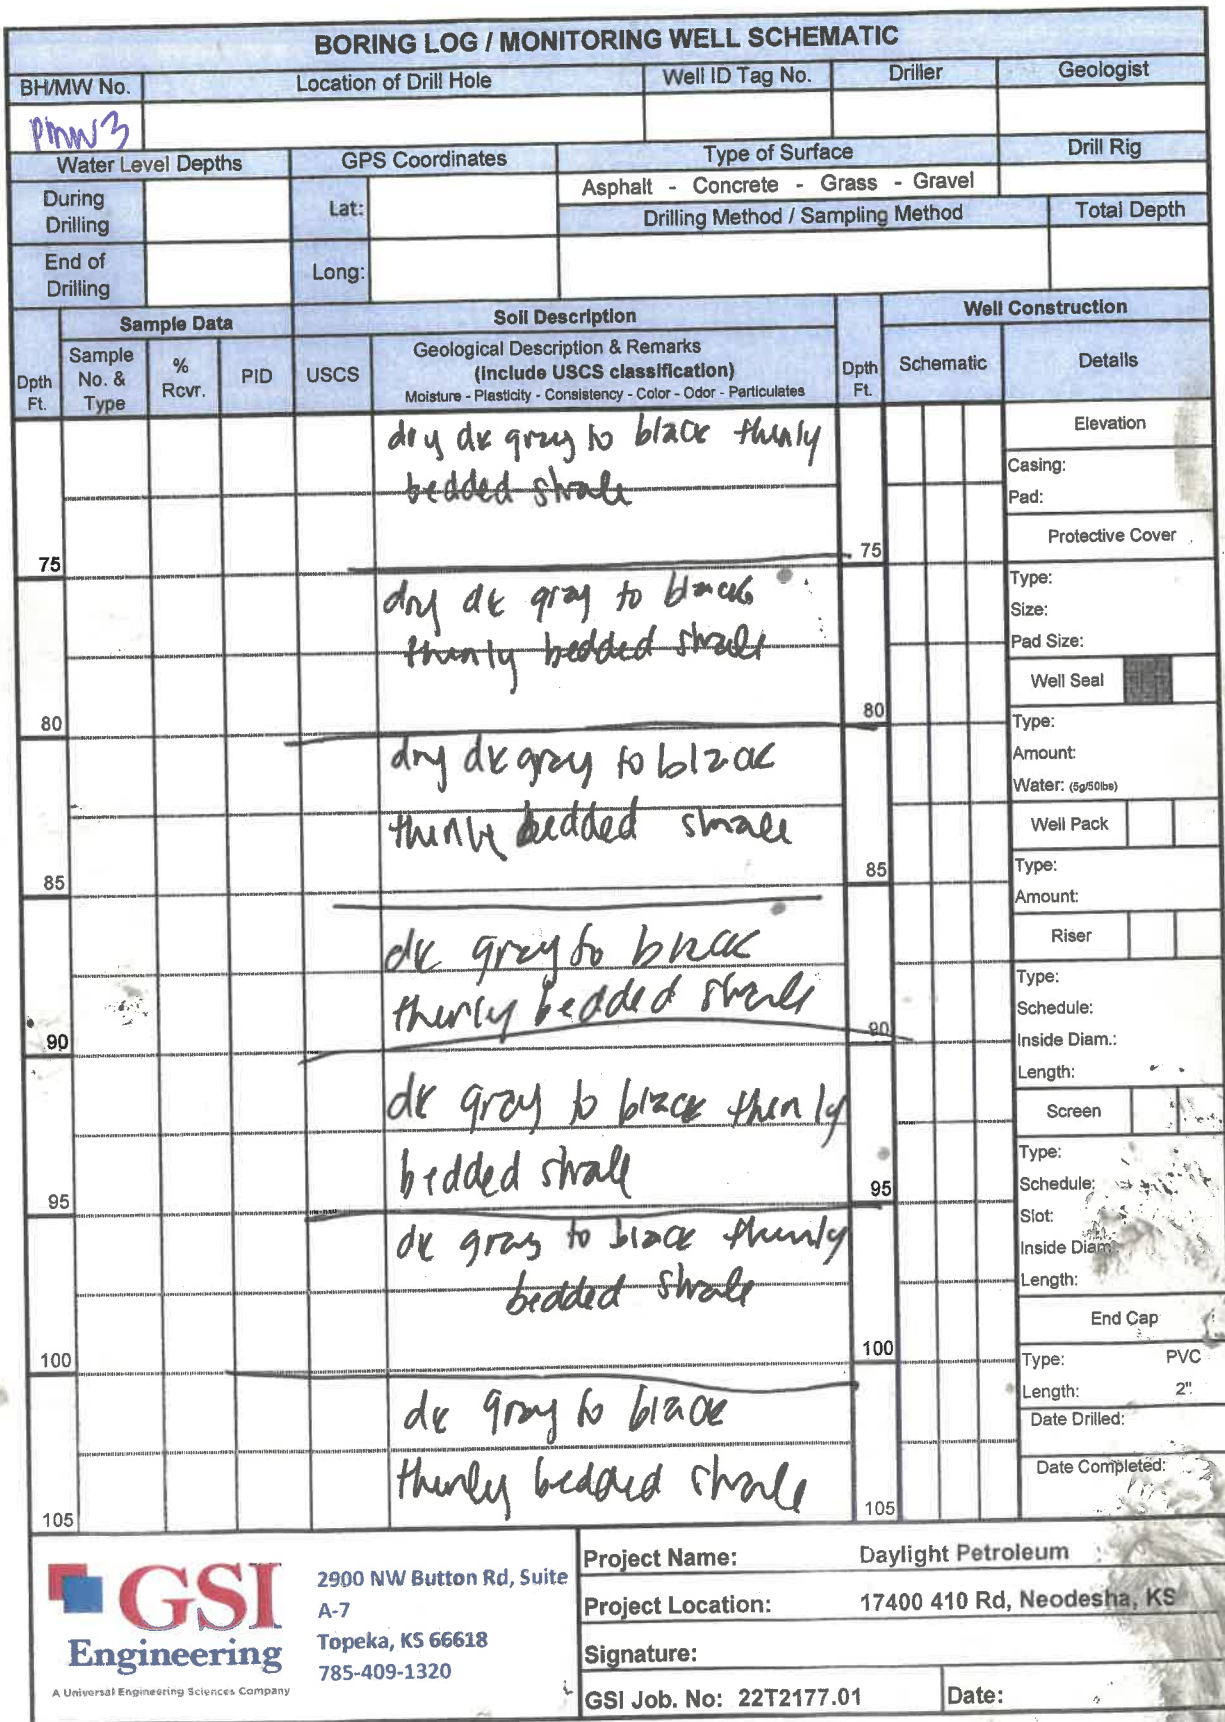 BORING LOG / MONITORING WELL SCHEMATIC
BH/MW No. Location of Drill Hole Well ID Tag No. Driller Geologist
PMW3
Water Level Depths GPS Coordinates Type of Surface Drill Rig
During Drilling Lat: Asphalt - Concrete - Grass - Gravel
Drilling Method / Sampling Method Total Depth
End of Drilling Long:
Sample Data Soil Description Well Construction
Dpth Ft. Sample No. & Type % Rcvr. PID USCS Geological Description & Remarks Dpth Ft. Schematic Details
(include USCS classification)
Moisture - Plasticity - Consistency - Color - Odor - Particulates
dry dk gray to black thinly
bedded shale
75 75
dry dk gray to black
thinly bedded shale
80 80
dry dk gray to black
thinly bedded shale
85 85
dk gray to black
thinly bedded shale
90 90
dk gray to black thinly
bedded shale
95 95
dk gray to black thinly
bedded shale
100 100
dk gray to black
thinly bedded shale
105 105
Elevation
Casing:
Pad:
Protective Cover
Type:
Size:
Pad Size:
Well Seal
Type:
Amount:
Water: (5g/50lbs)
Well Pack
Type:
Amount:
Riser
Type:
Schedule:
Inside Diam.:
Length:
Screen
Type:
Schedule:
Slot:
Inside Diam.:
Length:
End Cap
Type: PVC
Length: 2"
Date Drilled:
Date Completed:
GSI
Engineering
A Universal Engineering Sciences Company
2900 NW Button Rd, Suite
A-7
Topeka, KS 66618
785-409-1320
Project Name: Daylight Petroleum
Project Location: 17400 410 Rd, Neodesha, KS
Signature:
GSI Job. No: 22T2177.01 Date: